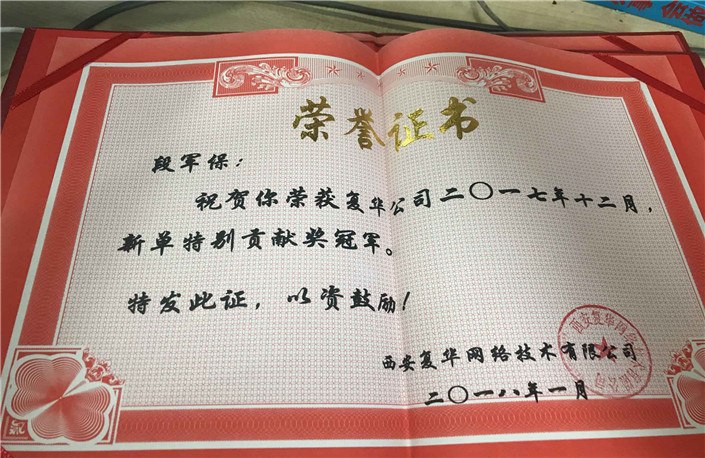 荣誉证书
段军保：
祝贺你荣获复华公司二〇一七年十二月，
新单特别贡献奖冠军。
特发此证，以资鼓励！
西安复华网络技术有限公司
二〇一八年一月